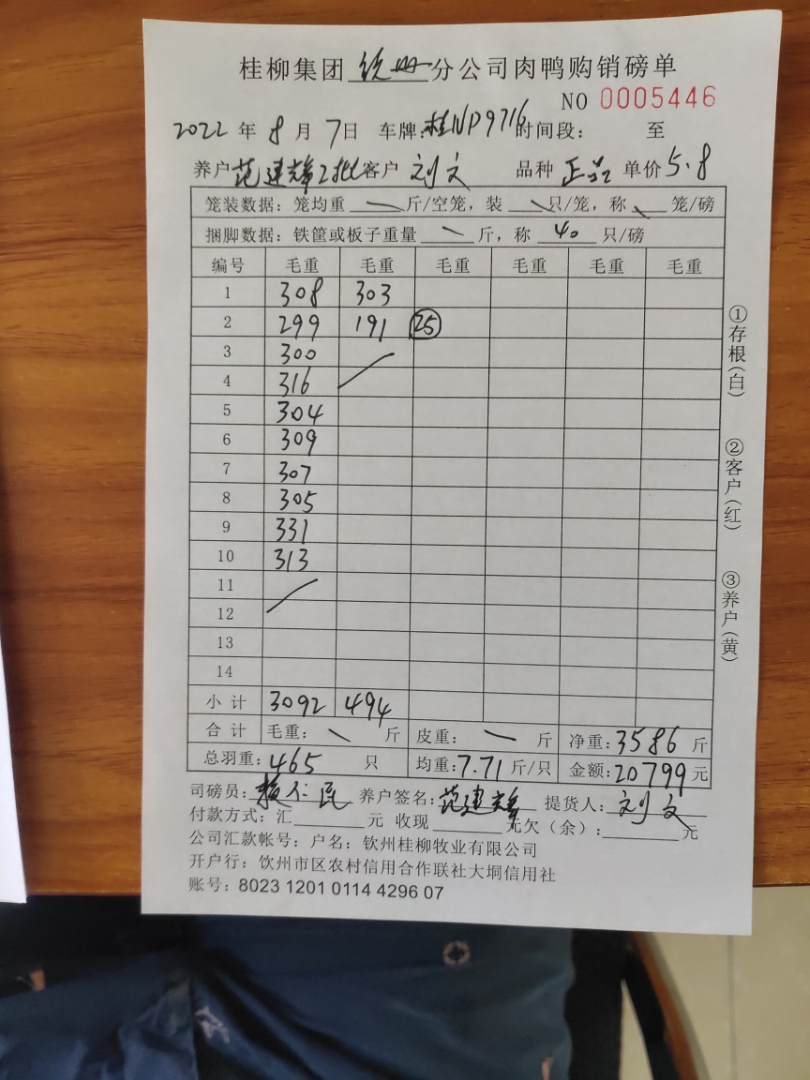 桂柳集团 钦州 分公司肉鸭购销磅单
NO 0005446
2022 年 8 月 7日 车牌:桂NP9716 时间段: 至
养户 范建锋2批 客户 刘文 品种 正品 单价 5.8
笼装数据: 笼均重 — 斤/空笼, 装 \ 只/笼, 称 \ 笼/磅
捆脚数据: 铁筐或板子重量 — 斤, 称 40 只/磅
编号 毛重 毛重 毛重 毛重 毛重 毛重
1 308 303
2 299 191 25
3 300
4 316
5 304
6 309
7 307
8 305
9 331
10 313
11
12
13
14
小 计 3092 494
合 计 毛重: \ 斤 皮重: — 斤 净重: 3586 斤
总羽重: 465 只 均重: 7.71 斤/只 金额: 20799 元
司磅员: 仁民 养户签名: 范建锋 提货人: 刘文
付款方式: 汇 元 收现 元欠(余): 元
公司汇款帐号: 户名: 钦州桂柳牧业有限公司
开户行: 饮州市区农村信用合作联社大垌信用社
账号: 8023 1201 0114 4296 07
①存根(白)
②客户(红)
③养户(黄)